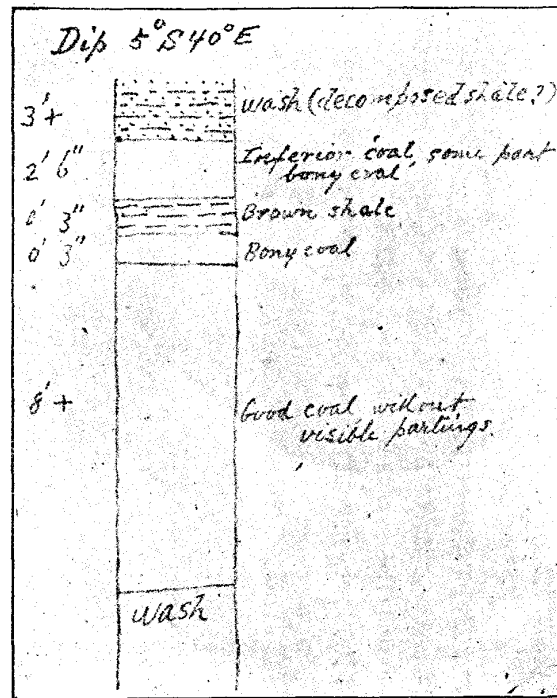 Dip 5° S 40° E
3'+ wash (decomposed shale?)
2' 6" Inferior coal, some part
bony coal
0' 3" Brown shale
0' 3" Bony coal
8'+ Good coal without
visible partings.
wash